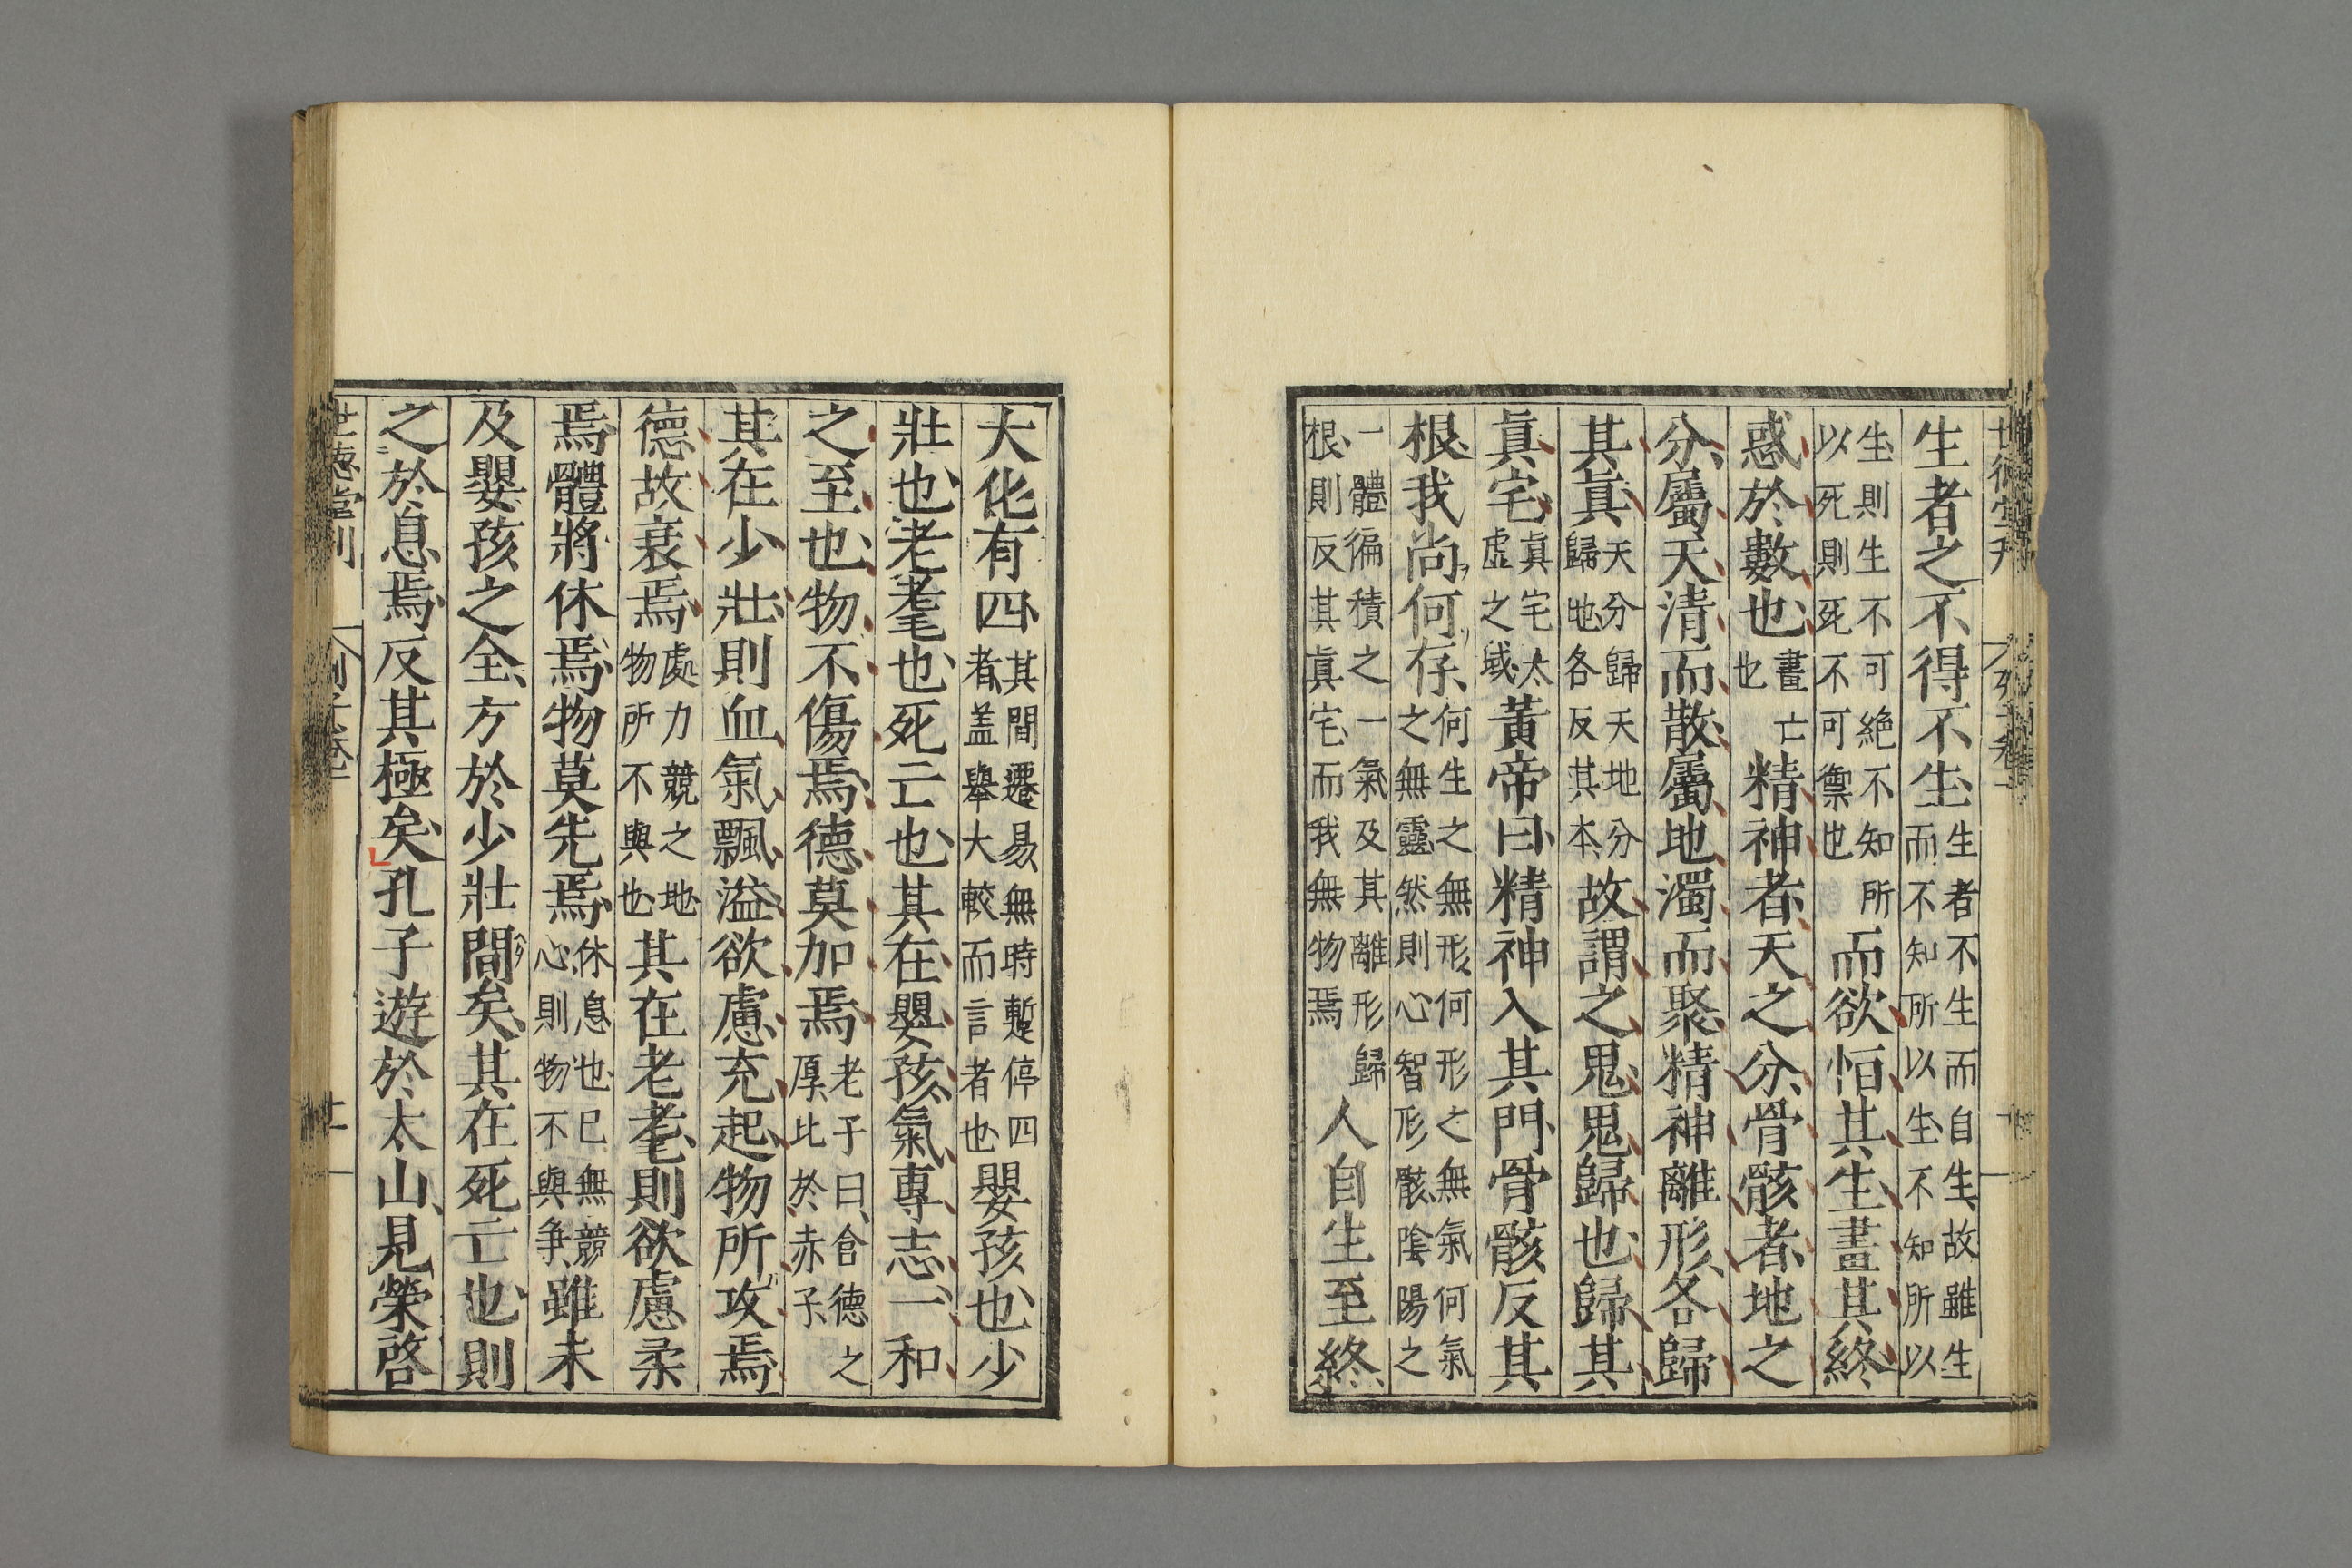 生者之不得不生生者不生而自生故雖生而不知所以生不知所以
生則生不可絶不知所以死則死不可禦也而欲恒其生畫其終
惑於數也畫亡也精神者天之分骨骸者地之
分屬天清而散屬地濁而聚精神離形各歸
其眞天分歸天地分歸地各反其本故謂之鬼鬼歸也歸其
眞宅眞宅太虚之域黃帝曰精神入其門骨骸反其
根我尚何存何生之無形何形之無氣何氣之無靈然則心智形骸陰陽之
一體徧積之一氣及其離形歸根則反其眞宅而我無物焉人自生至終
大化有四其間遷易無時蹔停四者盖舉大較而言者也嬰孩也少
壯也老耄也死亡也其在嬰孩氣專志一和
之至也物不傷焉德莫加焉老子曰含德之厚比於赤子
其在少壯則血氣飄溢欲慮充起物所攻焉
德故衰焉處力競之地物所不與也其在老耄則欲慮柔
焉體將休焉物莫先焉休息也已無競心則物不與爭雖未
及嬰孩之全方於少壯間矣其在死亡也則
之於息焉反其極矣孔子遊於太山見榮啓
世德堂刊